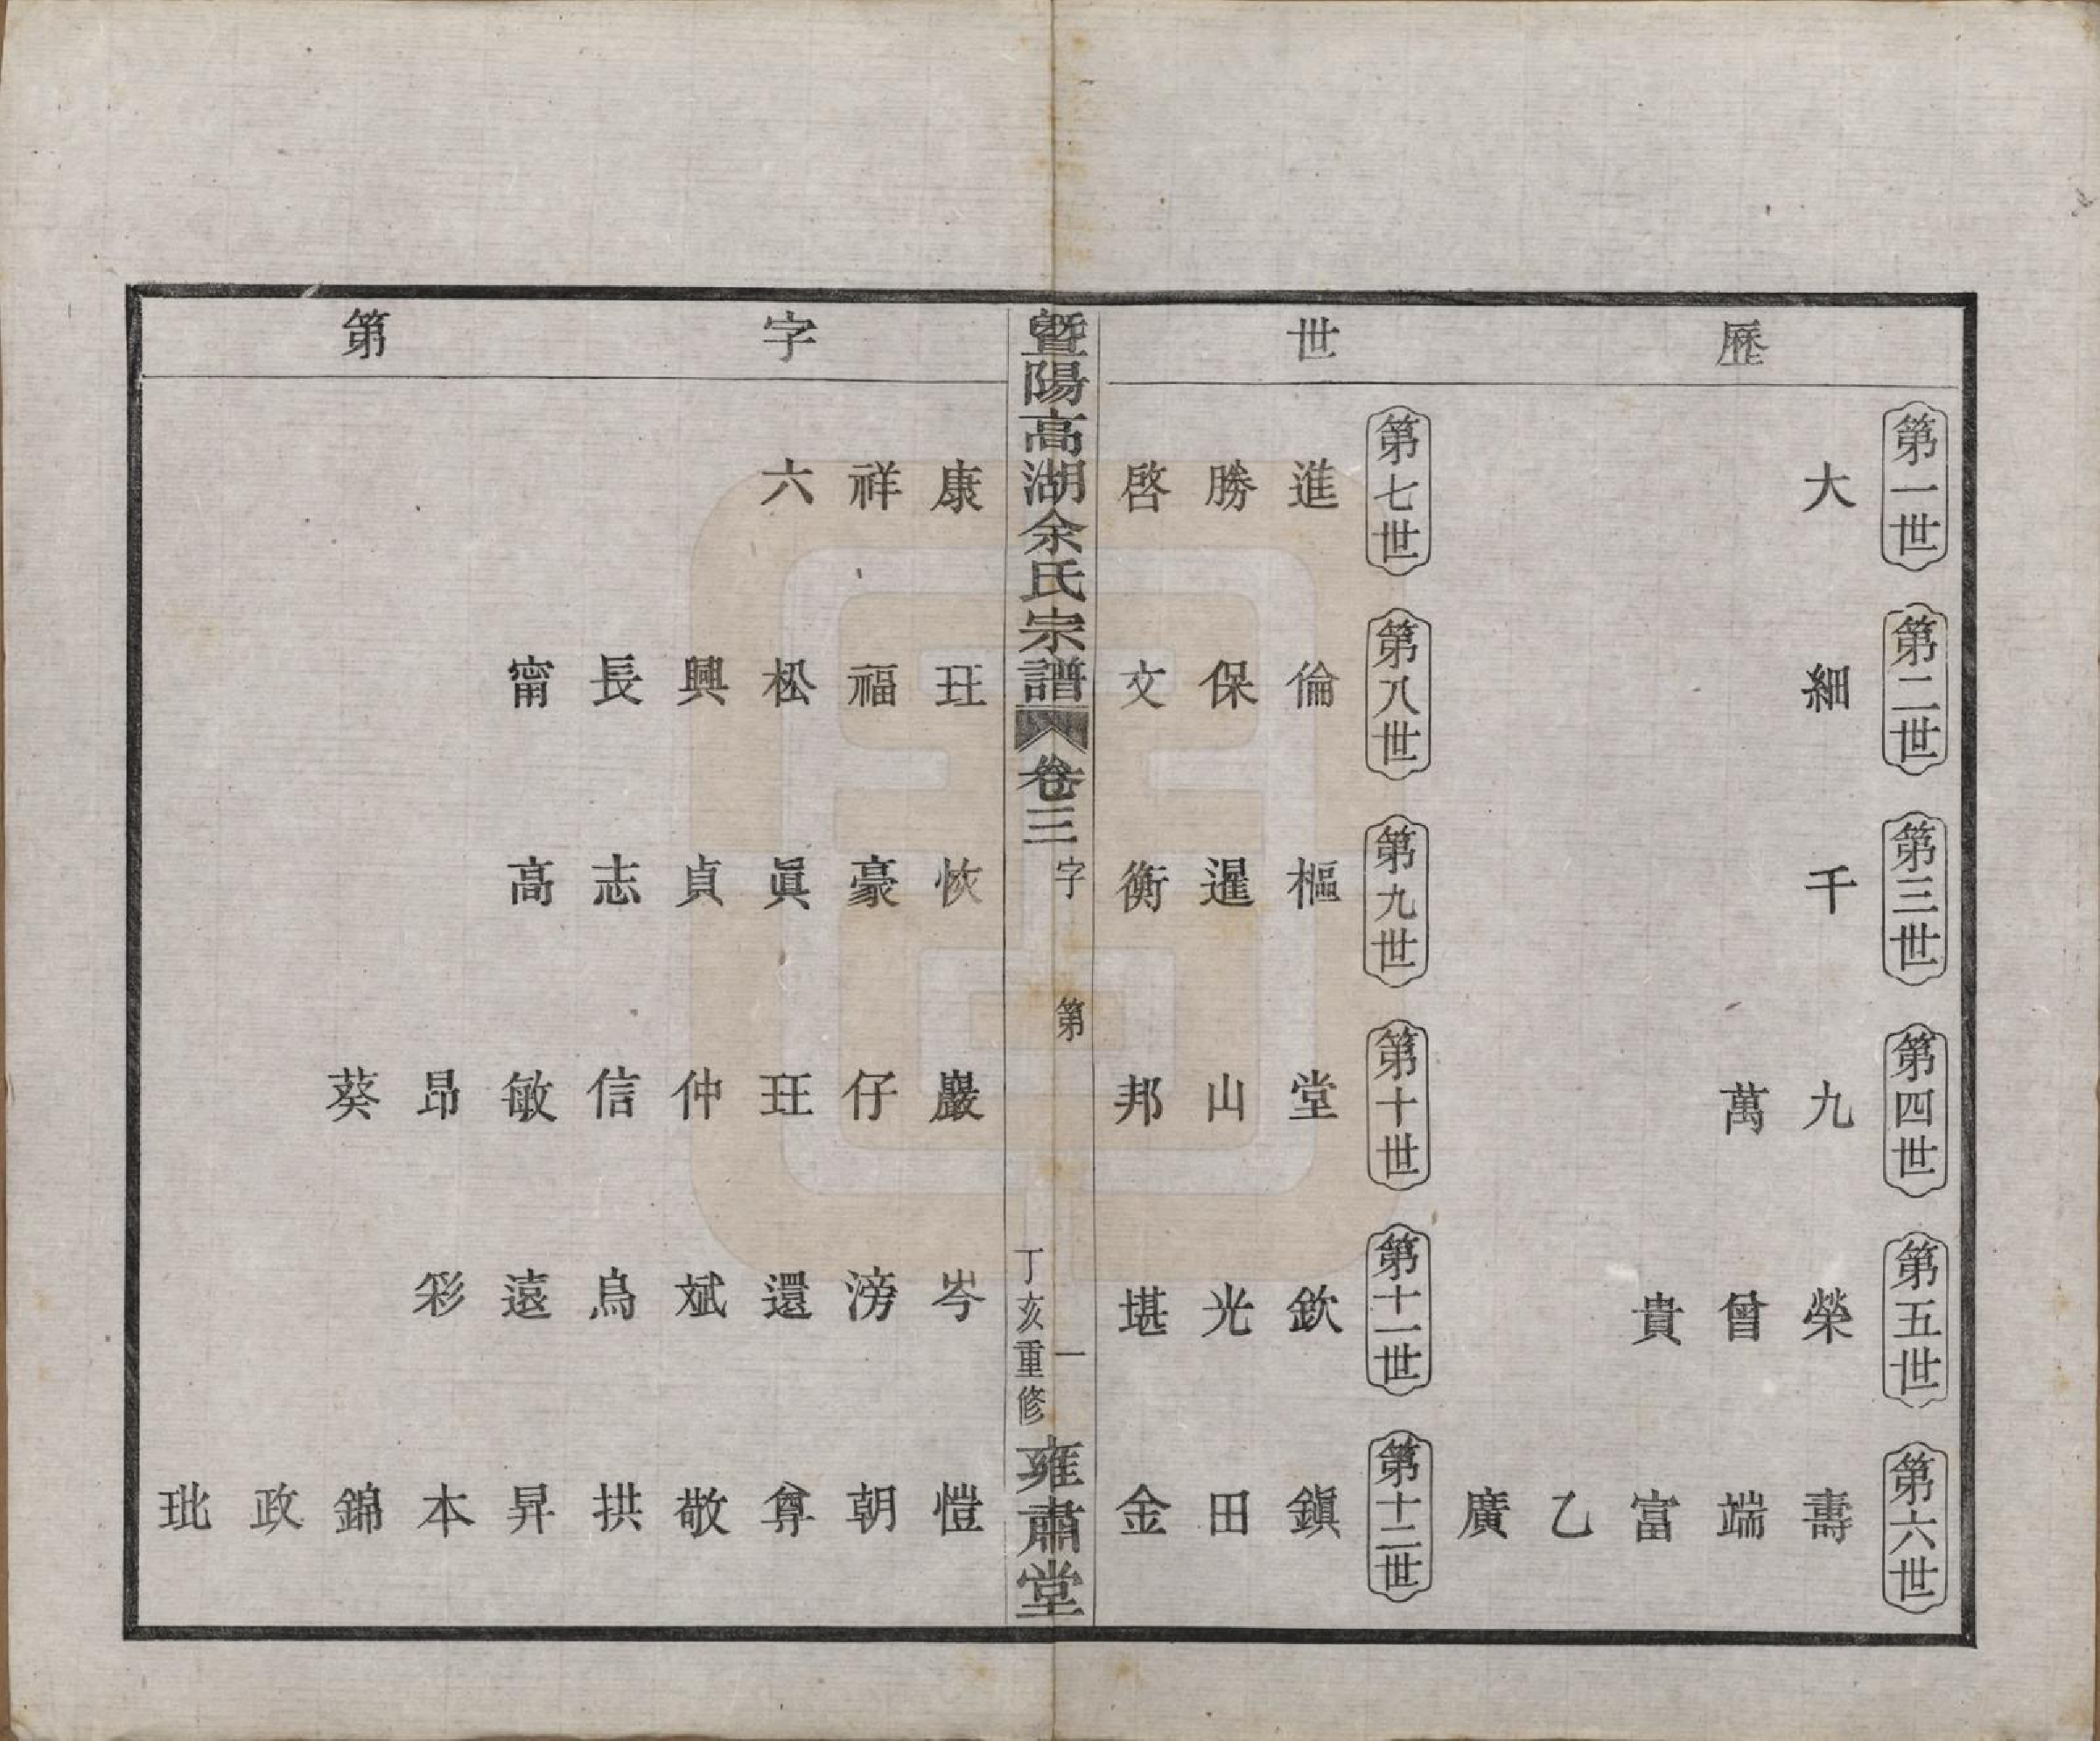 歷世字第
第一世
大
第二世
細
第三世
千
第四世
九萬
第五世
榮曾貴
第六世
壽端富乙廣
第七世
進勝啓康祥六
第八世
倫保文玨福松興長甯
第九世
樞暹衡恢豪眞貞志高
第十世
堂山邦巖仔玨仲信敏昂葵
第十一世
欽光堪岑滂還斌烏遠彩
第十二世
鎭田金愷朝尊敬拱昇本錦政玭
暨陽高湖余氏宗譜
卷三
字第
一
丁亥重修
雍肅堂